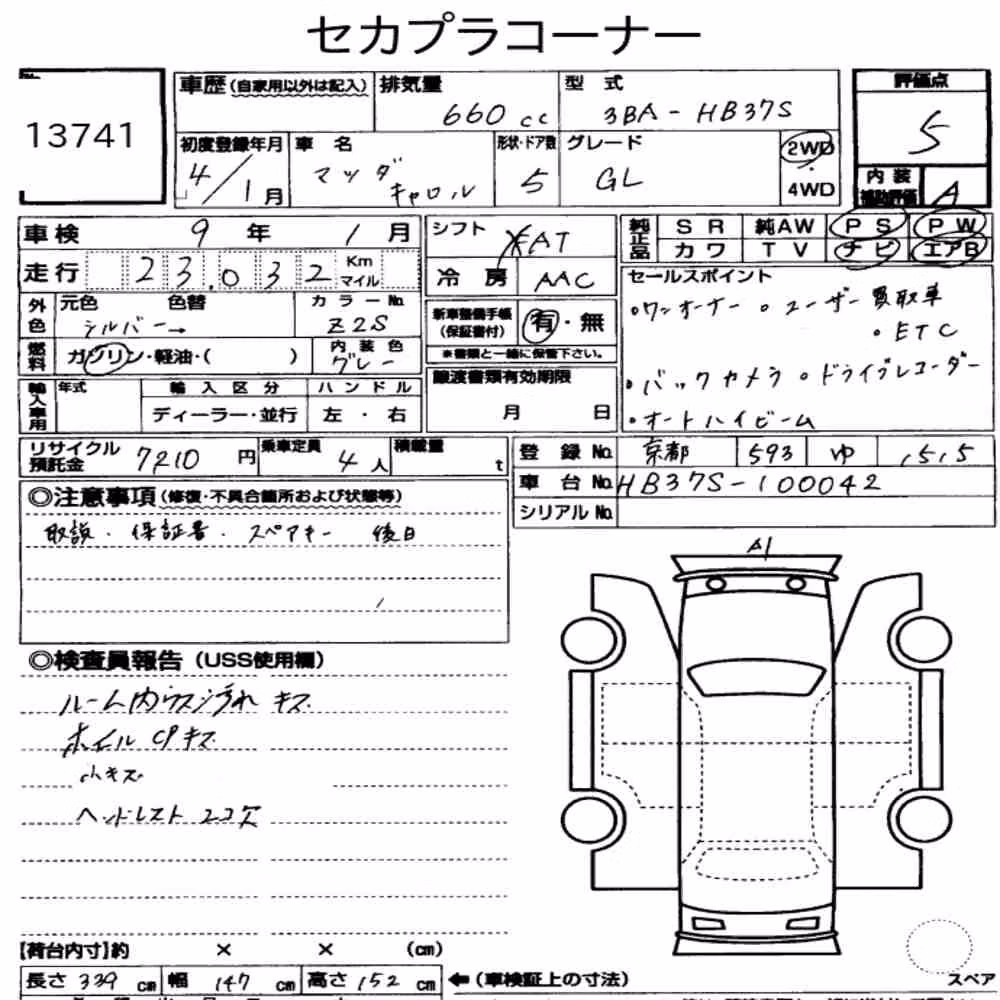 セカプラコーナー
No.
13741
車歴(自家用以外は記入) 排気量 660 cc 型式 3BA-HB37S
評価点 5
初度登録年月 4/1月 車名 マツダ キャロル 形状・ドア数 5 グレード GL 2WD 4WD
内装補助評価 A
車検 9年 1月
シフト FAT
純正品 SR 純AW PS PW
カワ TV ナビ エアB
走行 23,032 Km マイル
冷房 AAC
セールスポイント
・ワンオーナー ・ユーザー買取車
・ETC
・バックカメラ ・ドライブレコーダー
・オートハイビーム
外色 元色 色替 シルバー→ カラーNo. Z2S
新車整備手帳(保証書付) 有・無
※書類と一緒に保管下さい。
燃料 ガソリン・軽油・( ) 内装色 グレー
輸入車用 年式 輸入区分 ハンドル
ディーラー・並行 左・右
譲渡書類有効期限
月 日
リサイクル預託金 7210円 乗車定員 4人 積載量 t
登録No. 京都 593 ゆ 1515
車台No. HB37S-100042
シリアルNo.
◎注意事項(修復・不具合箇所および状態等)
取説・保証書・スペアキー 後日
A1
◎検査員報告(USS使用欄)
ルーム内ウス汚れ キズ
ホイルCPキズ
小キズ
ヘッドレスト2コ欠
【荷台内寸】約 × × (cm)
長さ 339 cm 幅 147 cm 高さ 152 cm ←(車検証上の寸法)
スペア